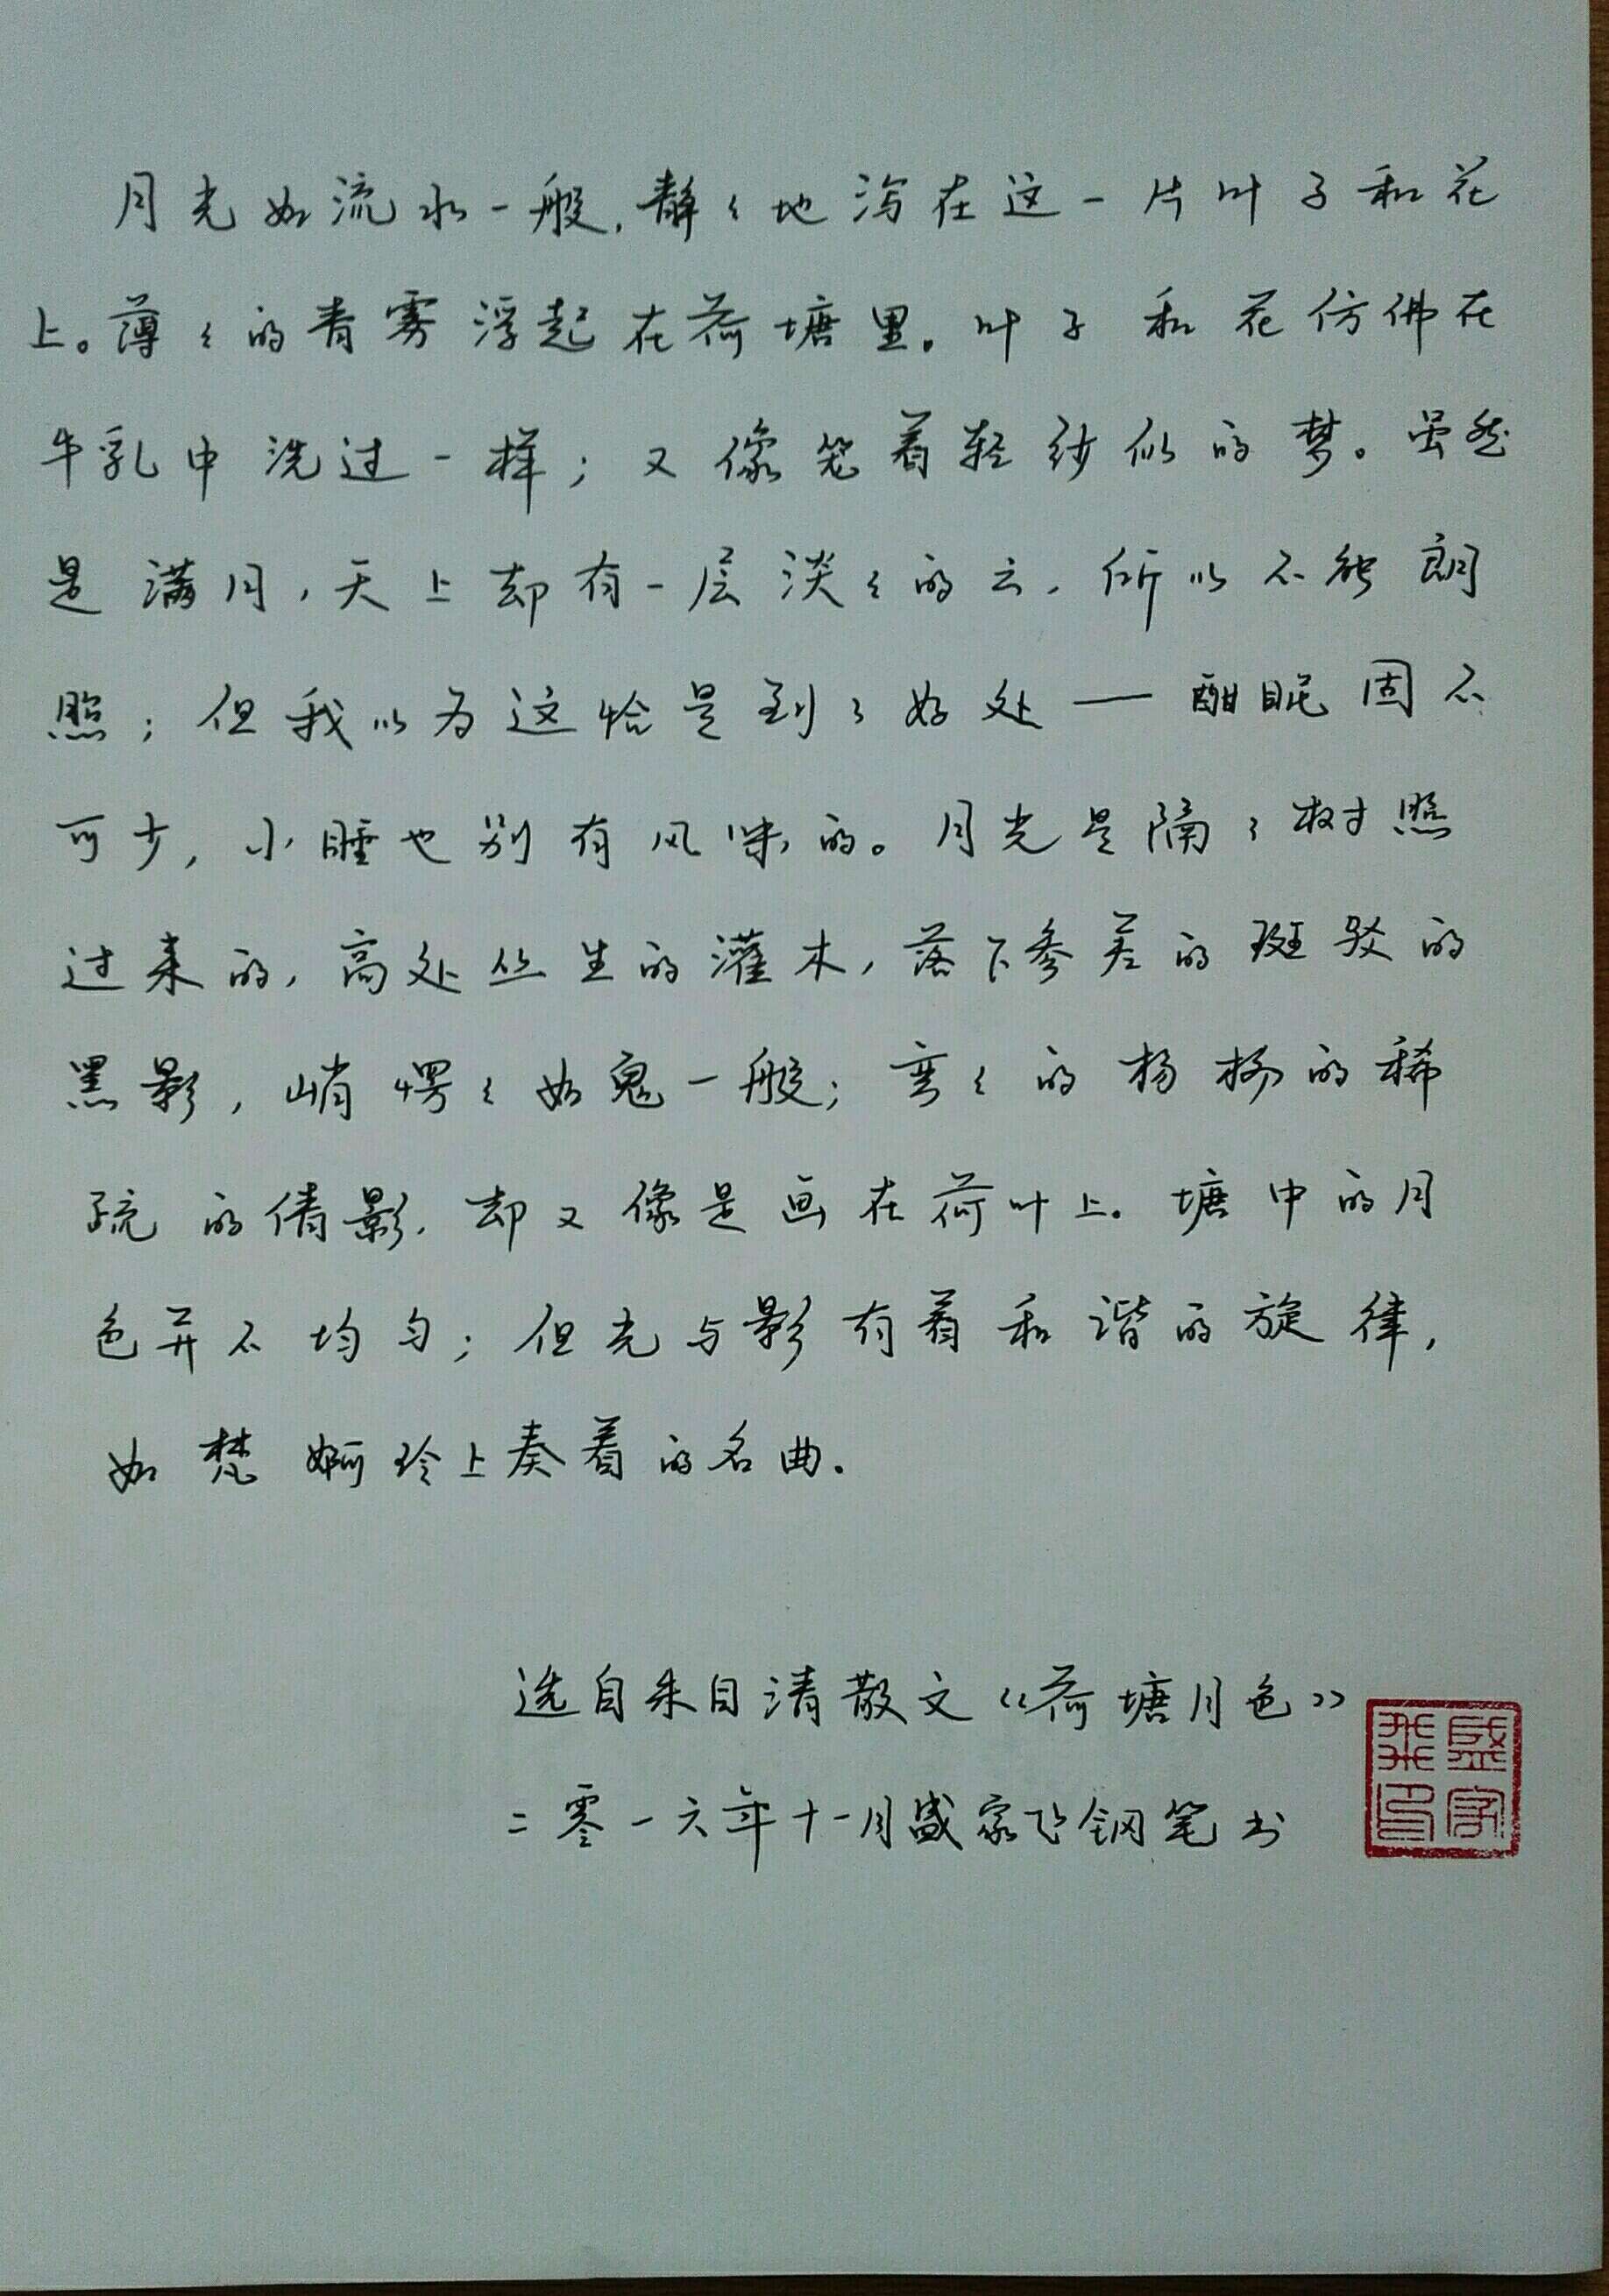 月光如流水一般,静々地泻在这一片叶子和花
上。薄々的青雾浮起在荷塘里。叶子和花仿佛在
牛乳中洗过一样;又像笼着轻纱似的梦。虽然
是满月,天上却有一层淡々的云,所以不能朗
照;但我以为这恰是到了好处——酣眠固不
可少,小睡也别有风味的。月光是隔了树照
过来的,高处丛生的灌木,落下参差的斑驳的
黑影,峭愣々如鬼一般;弯々的杨柳的稀
疏的倩影,却又像是画在荷叶上。塘中的月
色并不均匀;但光与影有着和谐的旋律,
如梵婀玲上奏着的名曲.
选自朱自清散文《荷塘月色》
二零一六年十一月盛家飞钢笔书
盛家
飛印